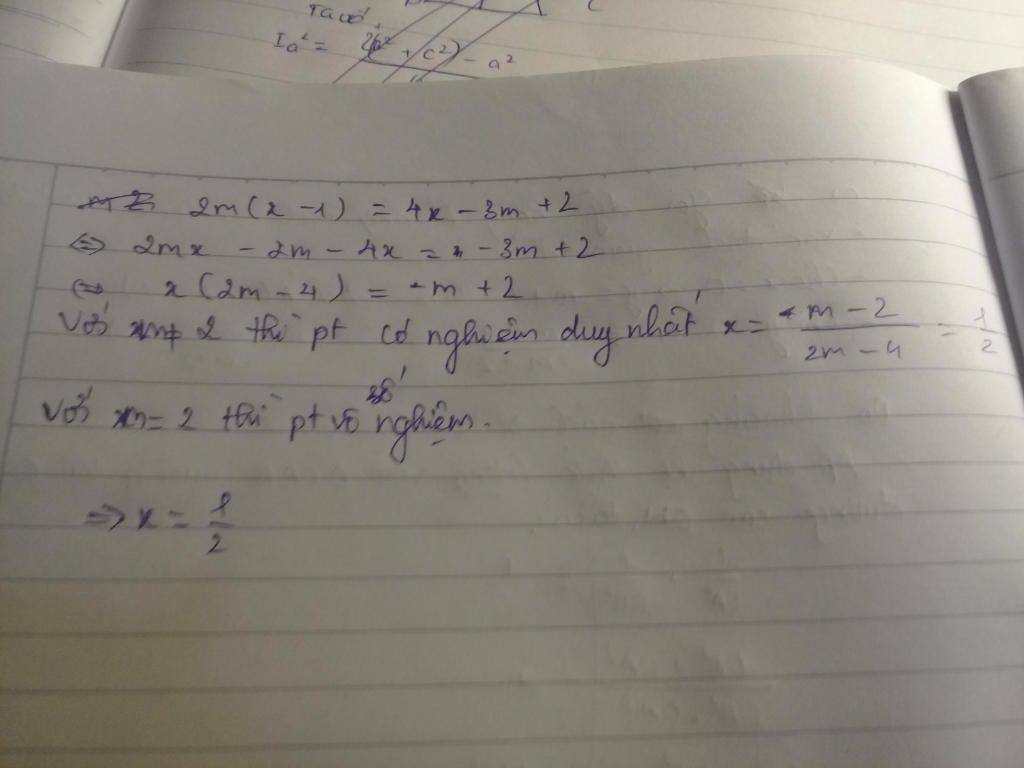 Ta có
Ia² = 2(b² + c²) - a²
C
2m(x - 1) = 4x - 3m + 2
⇔ 2mx - 2m - 4x = - 3m + 2
⇔ x(2m - 4) = -m + 2
Với m ≠ 2 thì pt có nghiệm duy nhất x = - \frac{m - 2}{2m - 4} = \frac{1}{2}
Với m = 2 thì pt vô số nghiệm.
=> x = \frac{1}{2}